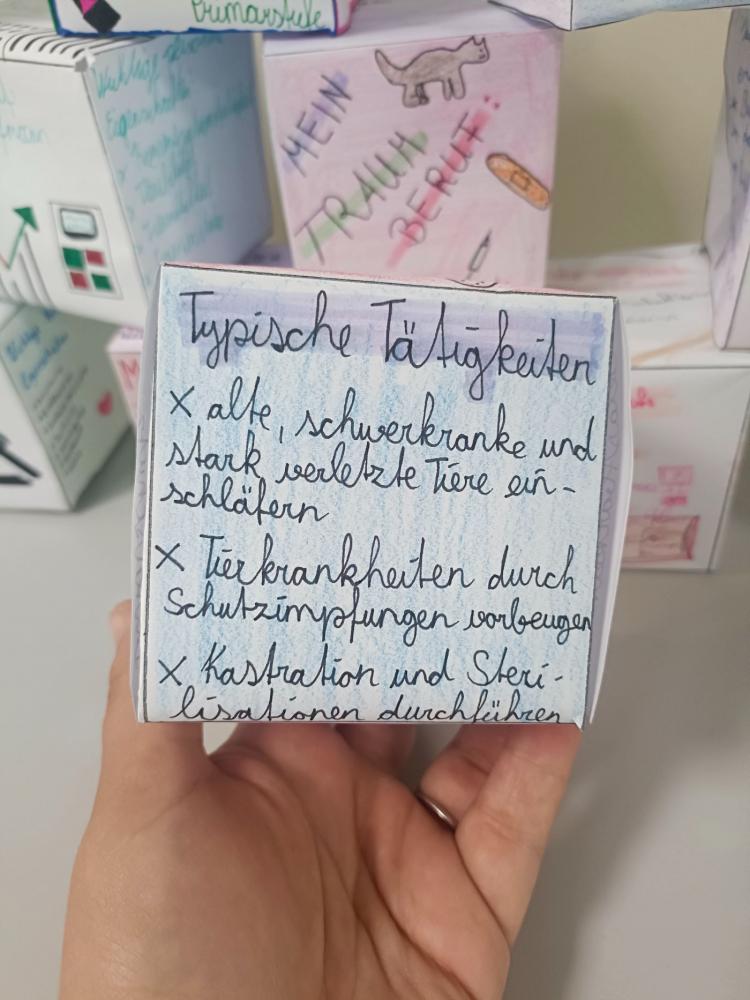 Primarstufe
MEIN
TRAUM
BERUF
Typische Tätigkeiten
X alte, schwerkranke und
stark verletzte Tiere ein-
schläfern
X Tierkrankheiten durch
Schutzimpfungen vorbeugen
X Kastration und Steri-
lisationen durchführen